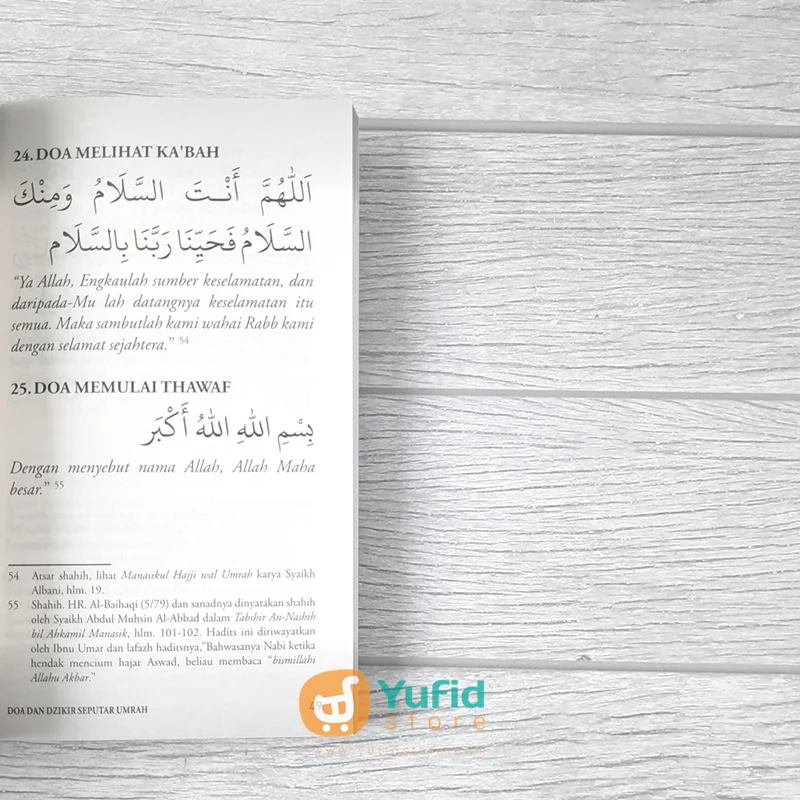 24. DOA MELIHAT KA'BAH
اَللّٰهُمَّ أَنْتَ السَّلَامُ وَمِنْكَ
السَّلَامُ فَحَيِّنَا رَبَّنَا بِالسَّلَامِ
“Ya Allah, Engkaulah sumber keselamatan, dan
daripada-Mu lah datangnya keselamatan itu
semua. Maka sambutlah kami wahai Rabb kami
dengan selamat sejahtera.” 54
25. DOA MEMULAI THAWAF
بِسْمِ اللهِ اللهُ أَكْبَر
Dengan menyebut nama Allah, Allah Maha
besar.” 55
54 Atsar shahih, lihat Manasikul Hajji wal Umrah karya Syaikh
Albani, hlm. 19.
55 Shahih. HR. Al-Baihaqi (5/79) dan sanadnya dinyatakan shahih
oleh Syaikh Abdul Muhsin Al-Abbad dalam Tabshir An-Nashih
bil Ahkamil Manasik, hlm. 101-102. Hadits ini diriwayatkan
oleh Ibnu Umar dan lafazh haditsnya,”Bahwasanya Nabi ketika
hendak mencium hajar Aswad, beliau membaca “bismillahi
Allahu Akbar.”
DOA DAN DZIKIR SEPUTAR UMRAH
Yufid
store
www.yufidstore.com